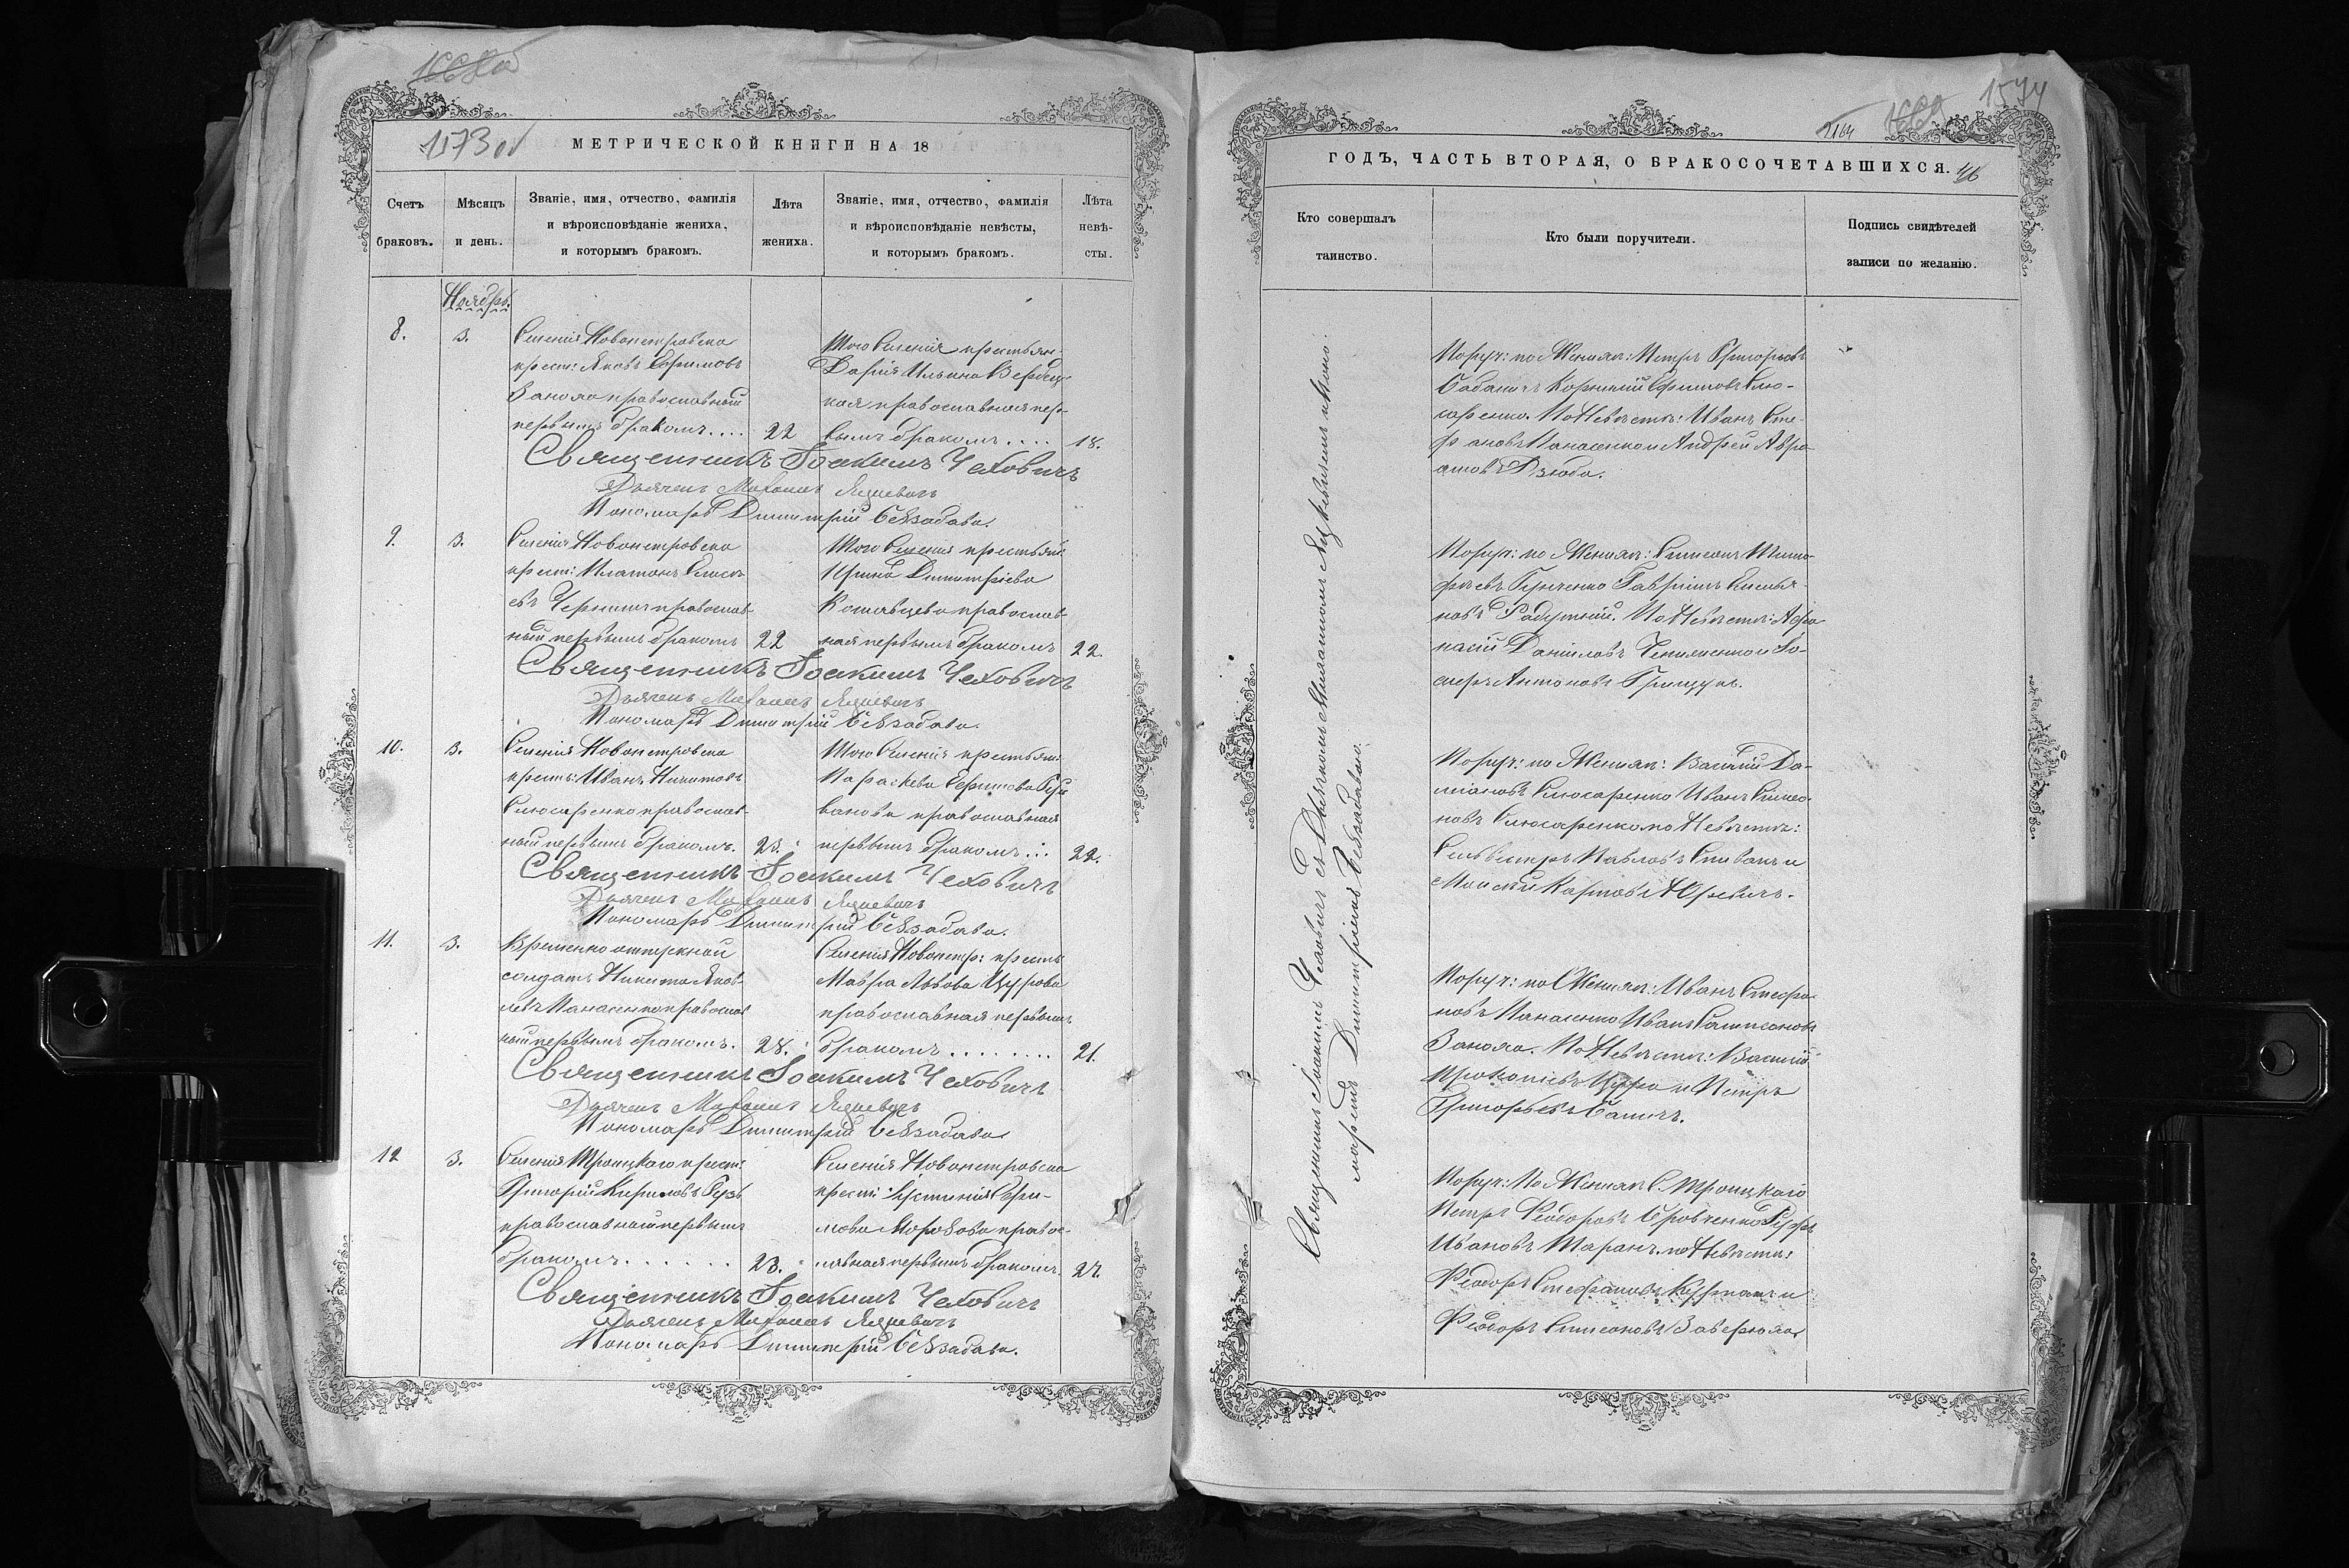 1573 об
МЕТРИЧЕСКОЙ КНИГИ НА 18
Счетъ браковъ.
Мѣсяцъ и день.
Званіе, имя, отчество, фамилія и вѣроисповѣданіе жениха, и которымъ бракомъ.
Лѣта жениха.
Званіе, имя, отчество, фамилія и вѣроисповѣданіе невѣсты, и которымъ бракомъ.
Лѣта невѣ-сты.
Ноябрь.
8.
3.
Селенія Новопетровска
крест: Яковъ Ефимовъ
Заноза православный
первымъ бракомъ....
22
Того Селенія крестьян:
Дарія Ильина Вербец-
кая православная пер-
вымъ бракомъ....
18.
Священникъ Іоакимъ Чехович
Дьячекъ Яцкевичъ
Пономарь Димитрій Беззабава.
9.
3.
Селенія Новопетровска
крест: Платонъ
евъ православ-
ный первымъ бракомъ
22
Того Селенія крестьян:
Ирина Димитріева
православ-
ная первымъ бракомъ
22.
Священникъ Іоакимъ Чехович
Дьячекъ Яцкевичъ
Пономарь Димитрій Беззабава.
10.
3.
Селенія Новопетровска
крест: Иванъ Никитовъ
Слюсаренко православ-
ный первымъ бракомъ.
23.
Того Селенія крестьян:
Параскева Ефимова
православная
первымъ бракомъ...
22.
Священникъ Іоакимъ Чехович
Дьячекъ Яцкевичъ
Пономарь Димитрій Беззабава.
11.
3.
Временно отпускной
солдатъ Никита Яков-
левъ Панасенко православ
ный первымъ бракомъ.
28.
Селенія Новопетр: крест:
Мавра Львова Цурова
православная первымъ
бракомъ........
21.
Священникъ Іоакимъ Чехович
Дьячекъ Яцкевичъ
Пономарь Димитрій Беззабава
12
3.
Селенія Троицкаго крест:
Григорій Кириловъ
православный первымъ
бракомъ......
23.
Селенія Новопетровска
крест: Іустинія Ефи-
мова Морозова правос-
лавная первымъ бракомъ.
Священникъ Іоакимъ Чехович
Дьячекъ Яцкевичъ
Пономарь Димитрій Беззабава.
1574
ГОДЪ, ЧАСТЬ ВТОРАЯ, О БРАКОСОЧЕТАВШИХСЯ.
Кто совершалъ таинство.
Кто были поручители.
Подпись свидѣтелей записи по желанію.
Священникъ Іоакимъ Чеховичъ съ Дьячкомъ Яцкевичемъ и поно-
маремъ Димитріемъ Беззабавою.
Поруч: по Женихѣ: Петръ Григорьевъ
Корнилій Ефимовъ Слю-
саренко. По Невѣстѣ: Иванъ Сте-
фановъ Панасенко и Андрей Авра-
амовъ Дзюба.
Поруч: по Женихѣ: Симеонъ Тимо-
феевъ Гавріилъ Емелья-
новъ По Невѣстѣ: Афа-
насій Даніиловъ и Іо-
сифъ Антоновъ Грищукъ.
Поруч: по Женихѣ: Василій Да-
міановъ Слюсаренко Иванъ Симео-
новъ Слюсаренко по Невѣстѣ:
Сильвестръ Павловъ Спивакъ и
Моисей Карповъ Юревичъ.
Поруч: по Женихѣ: Иванъ Стефа-
новъ Панасенко Иванъ Сампсоновъ
Заноза. По Невѣстѣ: Василій
Прокопіевъ Цура и Петръ
Григорьевъ
Поруч: По Женихѣ С. Троицкаго
Петръ Феодоровъ
Ивановъ Таранъ. по Невѣстѣ:
Феодоръ Стефановъ и
Феодоръ Симеоновъ Заверюха